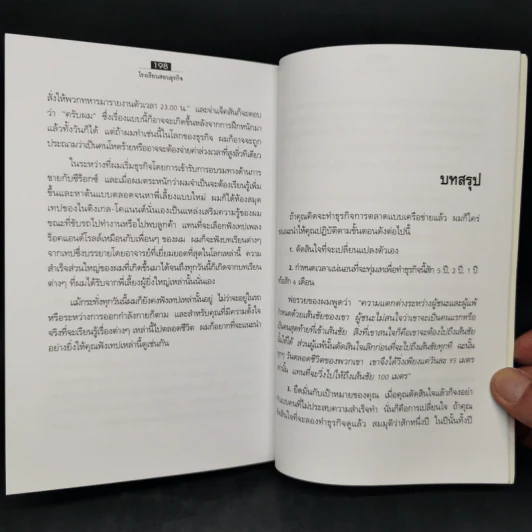 198
โรงเรียนสอนธุรกิจ
สั่งให้พวกทหารมารายงานตัวเวลา 23.00 น." และจ่าแจ็คสันก็จะตอบ
ว่า "ครับผม" ซึ่งเรื่องแบบนี้ก็อาจจะเกิดขึ้นหลังจากการฝึกหนักมา
แล้วทั้งวันก็ได้ แต่ถ้าผมทำเช่นนี้ในโลกของธุรกิจ ผมก็อาจจะถูก
ประณามว่าเป็นคนโหดร้ายหรืออาจจะต้องจ่ายค่าล่วงเวลาที่สูงลิ่วทีเดียว
ในระหว่างที่ผมเริ่มธุรกิจโดยการเข้ารับการอบรมทางด้านการ
ขายกับซีร็อกซ์ และเมื่อผมตระหนักว่าผมจำเป็นจะต้องเรียนรู้เพิ่ม
ขึ้นและหาต้นแบบตลอดจนหาพี่เลี้ยงแบบใหม่ ผมก็ได้ห้องสมุด
เทปของไนติงเกล-โคแนนต์นั่นเองเป็นแหล่งเสริมความรู้ของผม
ขณะที่ขับรถไปทำงานหรือไปพบลูกค้า แทนที่จะเลือกฟังเทปเพลง
ร็อคแอนด์โรลล์เหมือนกับเพื่อนๆ ของผม ผมก็จะฟังบทเรียนต่างๆ
จากเทปซึ่งบรรยายโดยอาจารย์ที่เยี่ยมยอดที่สุดในโลกเหล่านี้ ความ
สำเร็จส่วนใหญ่ของผมที่เกิดขึ้นมาได้จนถึงทุกวันนี้ก็เกิดจากบทเรียน
ต่างๆ ที่ผมได้รับจากพี่เลี้ยงผู้ยิ่งใหญ่เหล่านั้นนั่นเอง
แม้กระทั่งทุกวันนี้ผมก็ยังคงฟังเทปเหล่านั้นอยู่ ไม่ว่าจะอยู่ในรถ
หรือระหว่างการออกกำลังกายก็ตาม และสำหรับคุณที่มีความตั้งใจ
จริงที่จะเรียนรู้เรื่องต่างๆ เหล่านี้ไปตลอดชีวิต ผมก็อยากที่จะแนะนำ
อย่างยิ่งให้คุณฟังเทปเหล่านี้ดูเช่นกัน
บทสรุป
ถ้าคุณคิดจะทำธุรกิจการตลาดแบบเครือข่ายแล้ว ผมก็ใคร่
แนะนำให้คุณปฏิบัติตามขั้นตอนดังต่อไปนี้
1. ตัดสินใจที่จะเปลี่ยนแปลงตัวเอง
2. กำหนดเวลาแน่นอนที่จะทุ่มเทเพื่อทำธุรกิจนี้สัก 5 ปี, 2 ปี, 1 ปี
หรือสัก 6 เดือน
พ่อรวยของผมพูดว่า "ความแตกต่างระหว่างผู้ชนะและผู้แพ้
กำหนดด้วยเส้นชัยของเขา ผู้ชนะไม่สนใจว่าเขาจะเป็นคนแรกหรือ
เป็นคนสุดท้ายที่เข้าเส้นชัย สิ่งที่เขาสนใจก็คือเขาจะต้องไปถึงเส้นชัย
ให้ได้ ส่วนผู้แพ้นั้นตัดสินใจเลิกก่อนที่จะไปถึงเส้นชัยทุกที ฉะนั้น
ทุกๆ วันตลอดชีวิตของพวกเขา เขาจึงได้วิ่งเพียงแค่วันละ 95 เมตร
เท่านั้น แทนที่จะวิ่งไปให้ถึงเส้นชัย 100 เมตร"
3. ยึดมั่นกับเป้าหมายของคุณ เมื่อคุณตัดสินใจแล้วก็จงอย่า
ทำแบบคนที่ไม่ประสบความสำเร็จทำ นั่นก็คือการเปลี่ยนใจ ถ้าคุณ
ตัดสินใจที่จะลองทำธุรกิจดูแล้ว สมมุติว่าสักหนึ่งปี ในปีนั้นทั้งปี